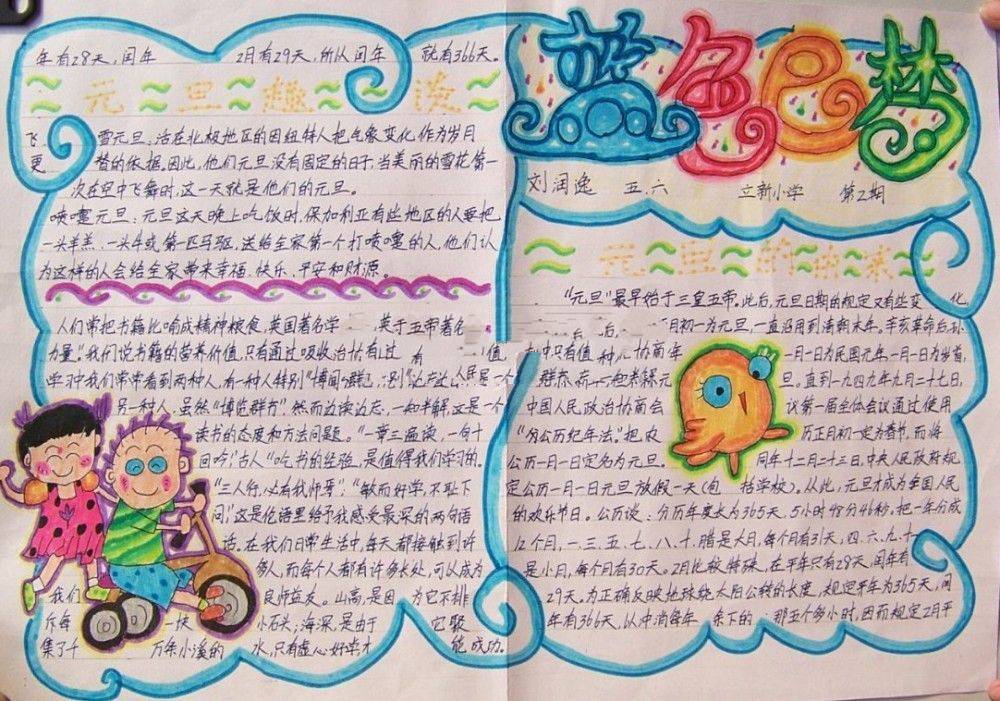 蓝色梦
刘润逸 五.六 立新小学 第2期
元旦的由来
"元旦"最早始于三皇五帝。此后,元旦日期的规定又有些变化,
月初一为元旦,一直沿用到清朝末年。辛亥革命后,孙
一月一日为民国元年一月一日为岁首,
旦。直到一九四九年九月二十七日,
中国人民政治协商会 议第一届全体会议通过使用
"分公历纪年法",把农 历正月初一定为春节,而将
公历一月一日定名为元旦。 同年十二月二十三日,中央人民政府规
定公历一月一日元旦放假一天(包 括学校)。从此,元旦才成为全国人民
的欢乐节日。公历说:分历年度长为365天,5小时48分46秒,把一年分成
12个月,一、三、五、七、八、十、腊是大月,每个月有31天,四、六、九、十一
是小月,每个月有30天。2月比较特殊,在平年只有28天,闰年有
29天。为正确反映地球绕太阳公转的长度,规定平年为365天,闰
年有366天,以冲消每年 余下的 那五个多小时,因而规定2月平
年有28天,闰年 2月有29天,所以闰年 就有366天。
元旦趣谈
飞 雪元旦:活在北极地区的因纽特人把气象变化作为岁月
更 替的依据。因此,他们元旦没有固定的日子,当美丽的雪花第一
次在空中飞舞时,这一天就是他们的元旦。
喷嚏元旦:元旦这天晚上吃饭时,保加利亚有些地区的人要把
一头羊羔、一头牛或第一匹马驱,送给全家第一个打喷嚏的人,他们认
为这样的人会给全家带来幸福、快乐、平安和财源。
人们常把书籍比喻成精神粮食,英国著名学
力量"。我们说书籍的营养价值,只有通过吸收
学习中我们常常看到两种人,有一种人特别"博闻
另一种人,虽然"博览群书",然而边读边忘,一知半解,这是一个
读书的态度和方法问题。"一章三遍读,一句十
回吟",古人"吃书的经验,是值得我们学习的。
"三人行,必有我师焉";"敏而好学,不耻下
问",这是伦语里给予我感受最深的两句语
话。在我们日常生活中,每天都接触到许
多人,而每个人都有许多长处,可以成为
我们 良师益友。山高,是因 为它不排
斥每 一块 小石头;海深,是由于 它聚
集了千 万条小溪的 水,只有虚心好学,才 能成功。